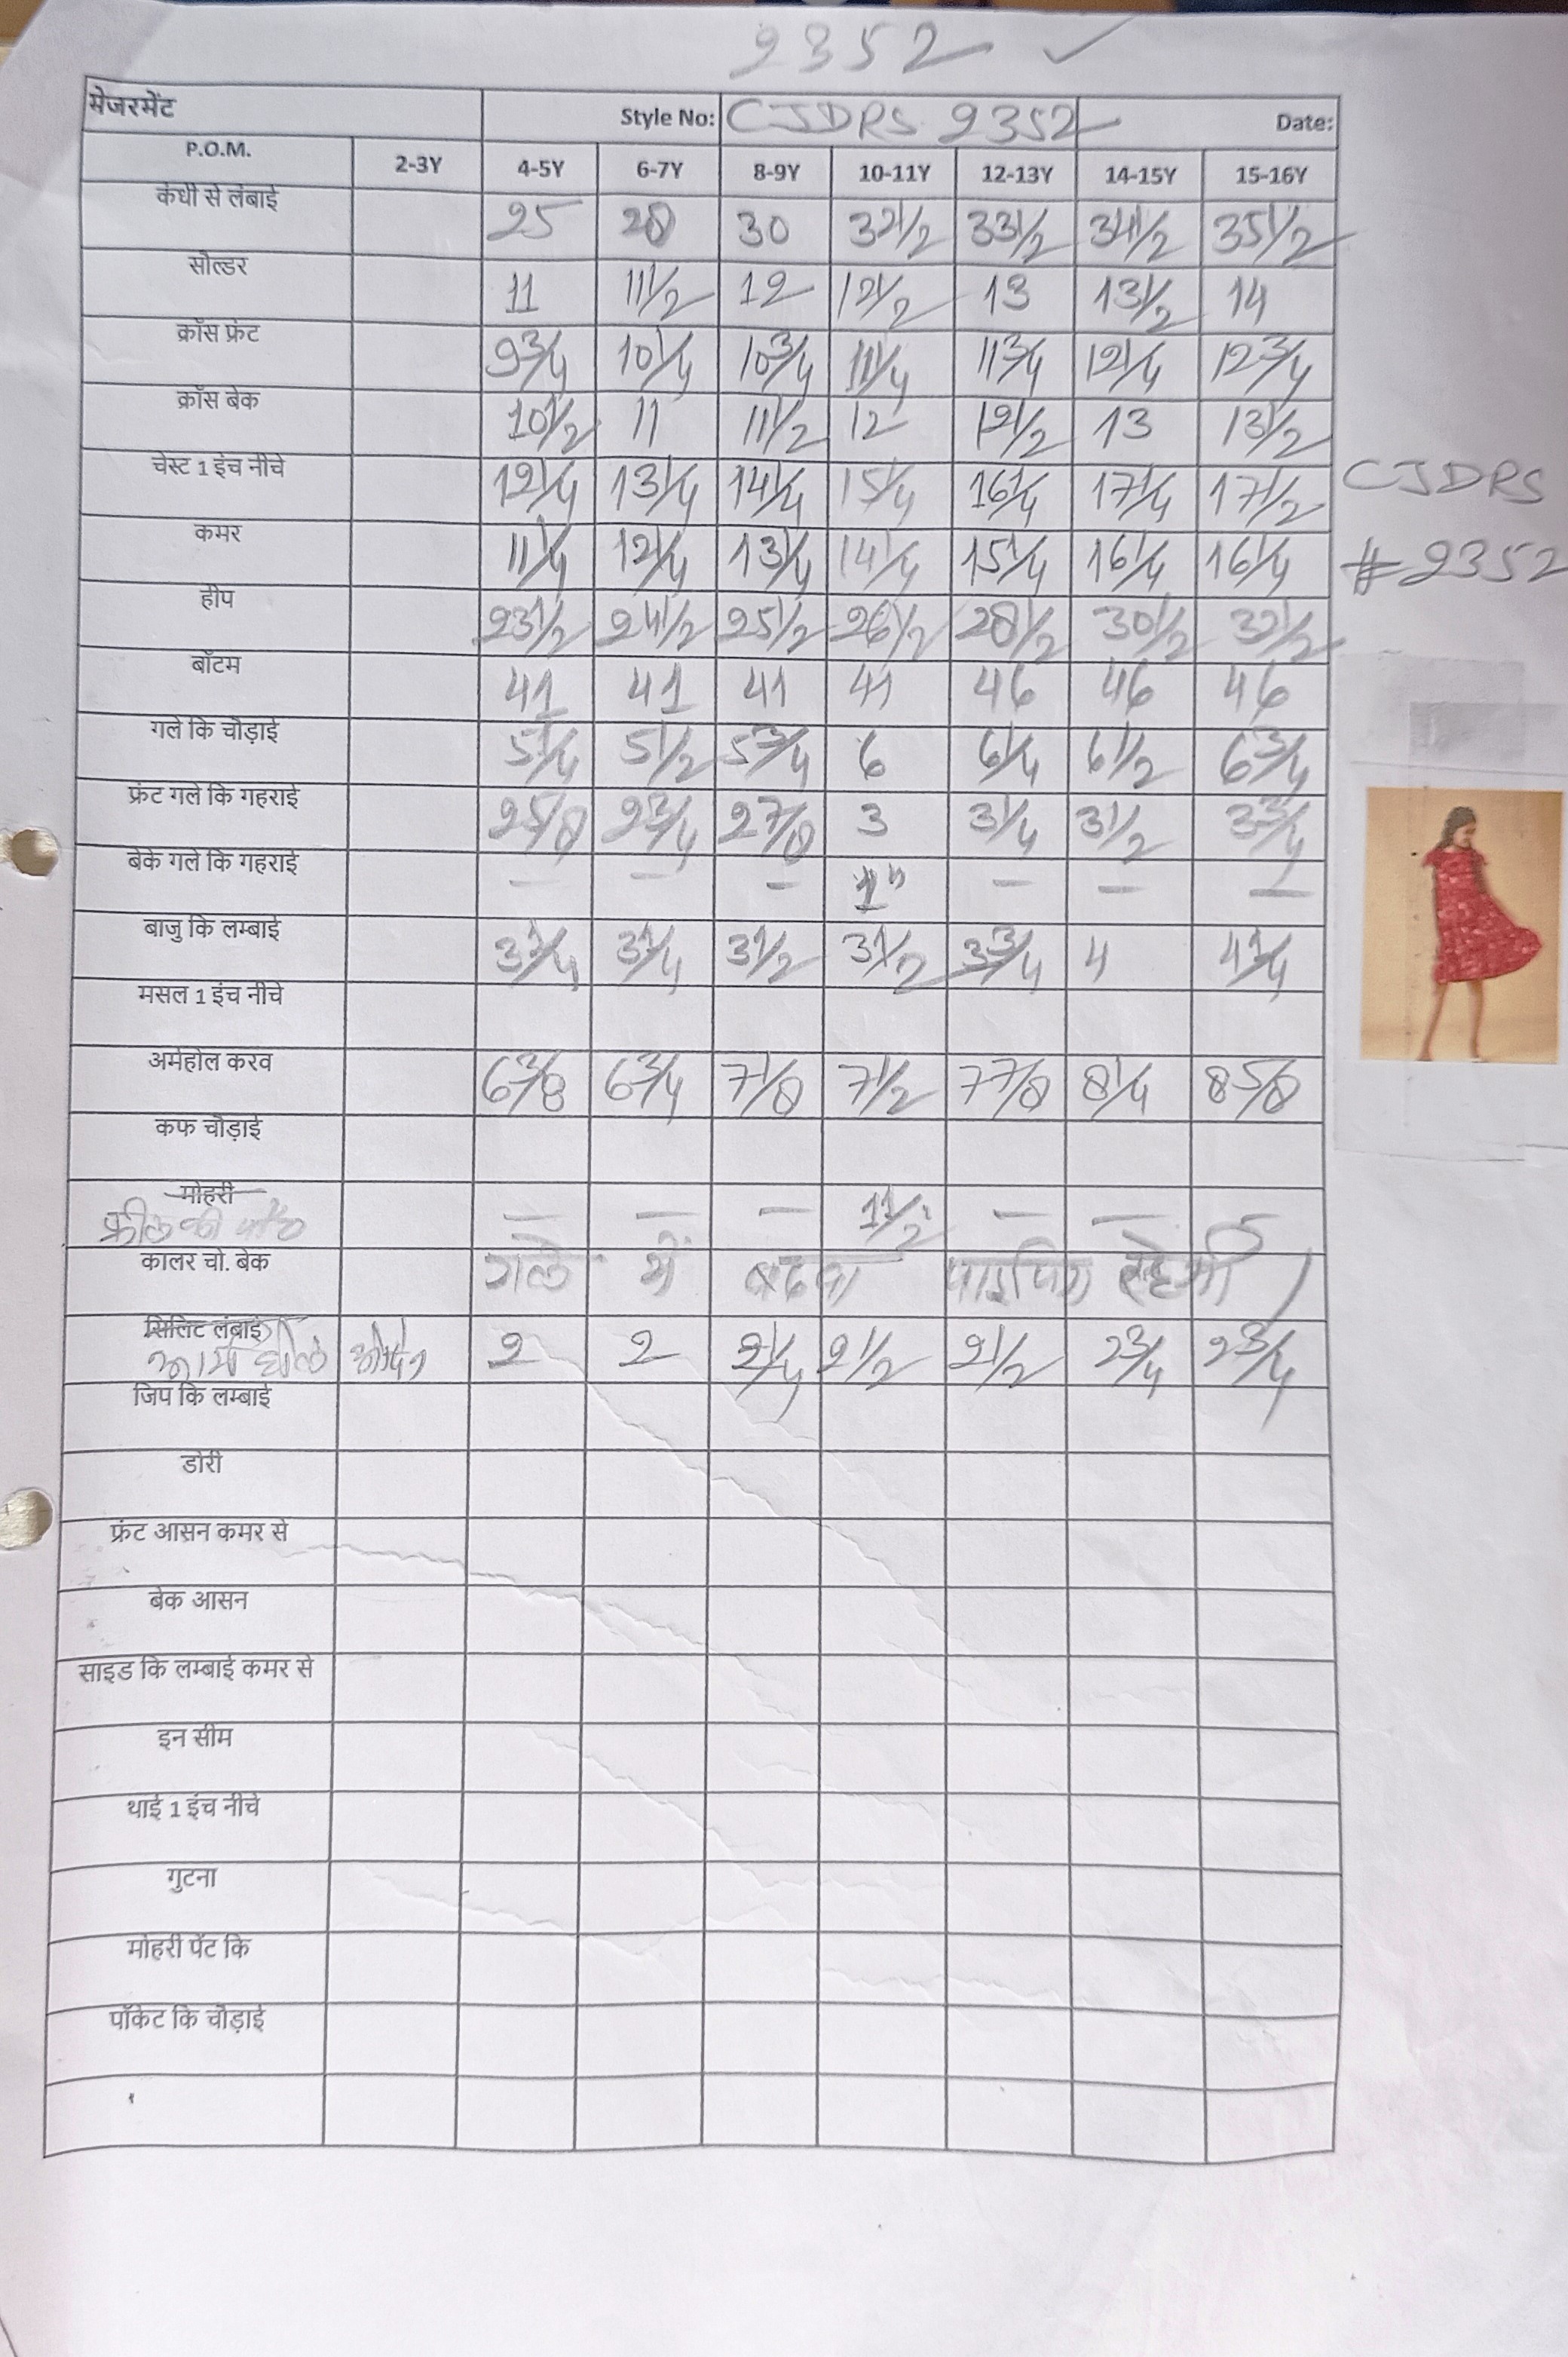 2352 ✓
मेजरमेंट Style No: CJDRS 2352 Date:
P.O.M. 2-3Y 4-5Y 6-7Y 8-9Y 10-11Y 12-13Y 14-15Y 15-16Y
कंधी से लंबाई 25 28 30 32 1/2 33 1/2 34 1/2 35 1/2
सोल्डर 11 11 1/2 12 12 1/2 13 13 1/2 14
क्रॉस फ्रंट 9 3/4 10 1/4 10 3/4 11 1/4 11 3/4 12 1/4 12 3/4
क्रॉस बेक 10 1/2 11 11 1/2 12 12 1/2 13 13 1/2
चेस्ट 1 इंच नीचे 12 1/4 13 1/4 14 1/4 15 1/4 16 1/4 17 1/4 17 1/2
CJDRS
कमर 11 1/4 12 1/4 13 1/4 14 1/4 15 1/4 16 1/4 16 1/4
#2352
हीप 23 1/2 24 1/2 25 1/2 26 1/2 28 1/2 30 1/2 32 1/2
बॉटम 41 41 41 41 46 46 46
गले कि चौड़ाई 5 1/4 5 1/2 5 3/4 6 6 1/4 6 1/2 6 3/4
फ्रंट गले कि गहराई 2 5/8 2 3/4 2 7/8 3 3 1/4 3 1/2 3 3/4
बेके गले कि गहराई — — — 1" — — —
बाजु कि लम्बाई 3 1/4 3 1/4 3 1/2 3 1/2 3 3/4 4 4 1/4
मसल 1 इंच नीचे
अर्महोल करव 6 3/8 6 3/4 7 1/8 7 1/2 7 7/8 8 1/4 8 5/8
कफ चौड़ाई
मोहरी
— — — 1 1/2" — —
कालर चो. बेक गले में पाइपिंग रहेगी
सिलिट लंबाई
2 2 2 1/4 2 1/2 2 1/2 2 3/4 2 3/4
जिप कि लम्बाई
डोरी
फ्रंट आसन कमर से
बेक आसन
साइड कि लम्बाई कमर से
इन सीम
थाई 1 इंच नीचे
गुटना
मोहरी पेंट कि
पॉकेट कि चौड़ाई